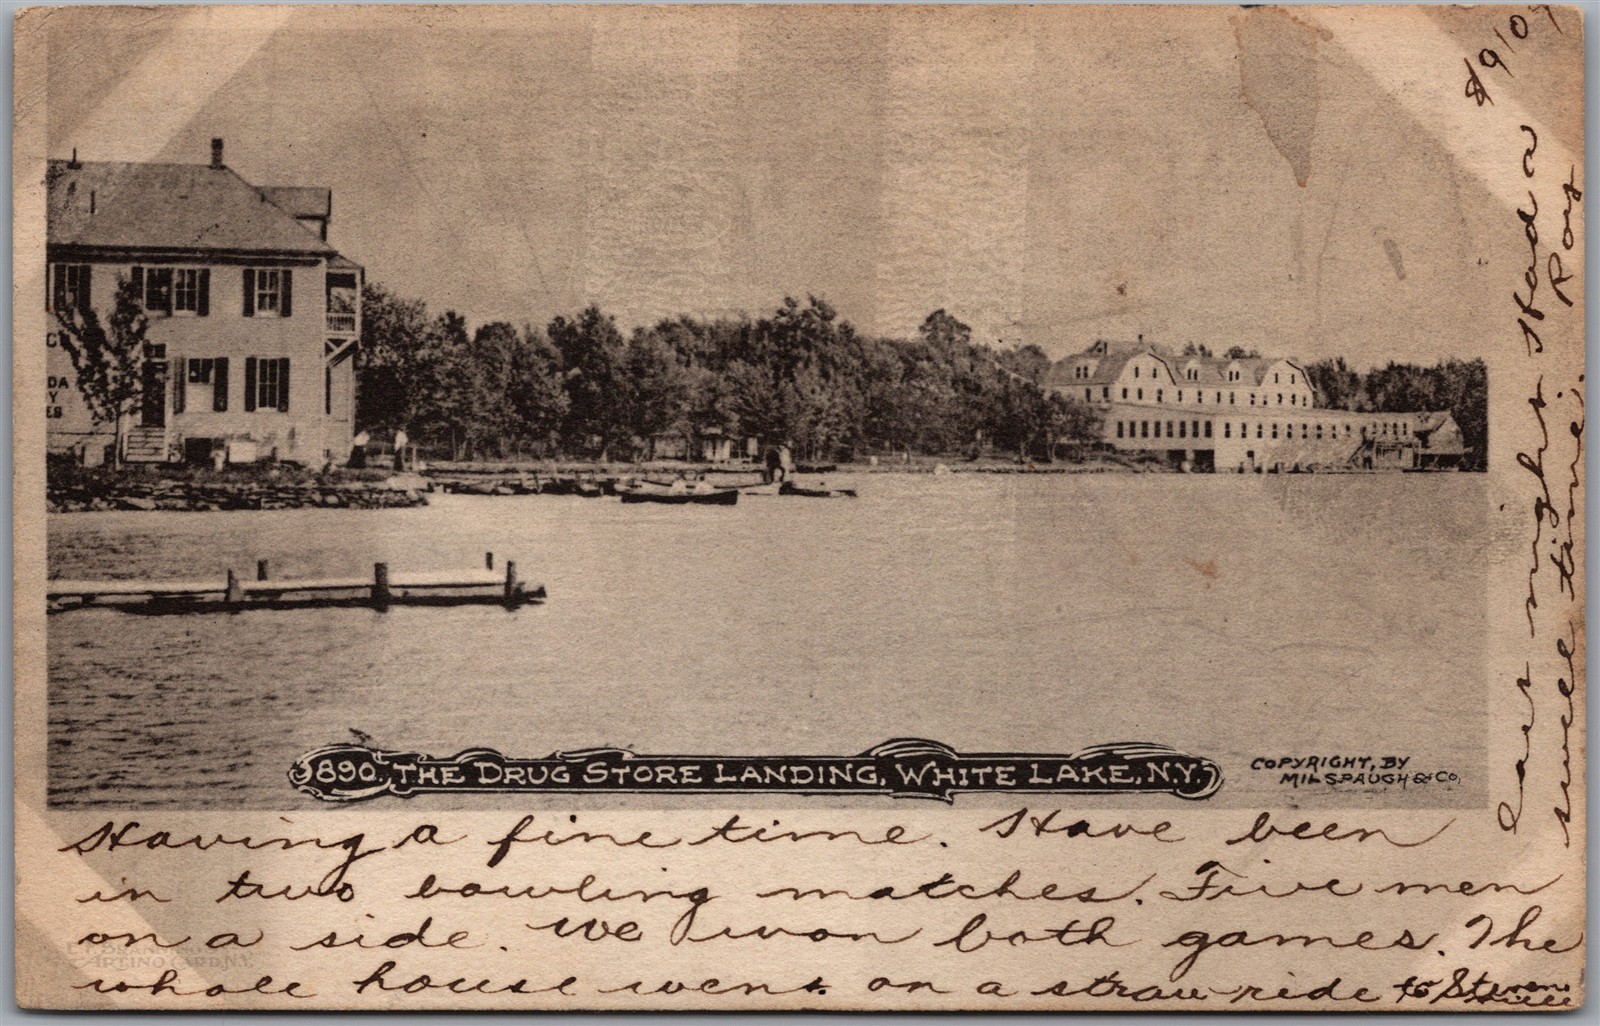 890. THE DRUG STORE LANDING, WHITE LAKE, N.Y.
COPYRIGHT, BY
MILSPAUGH & CO.
Having a fine time. Have been
in two bowling matches. Five men
on a side. We won both games. The
whole house went on a straw ride to
last night. Had a
swell time. Roy
ARTINO CARD N.Y.